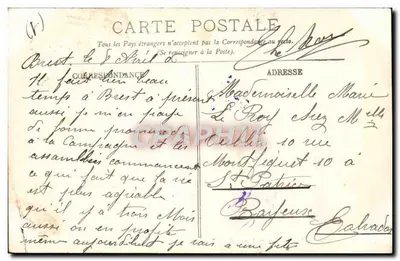 CARTE POSTALE
Tous les Pays étrangers n'acceptent pas la Correspondance au recto.
(Se renseigner à la Poste).
CORRESPONDANCE
ADRESSE
Brest le 8 Avril
Il fait un beau
temps à Brest à présent
aussi je m'en paye
de bonne promenade
à la Campagne et les
assemblées commencent
ce qui fait que la vie
est plus agréable
qu'il y a trois Mois
aussi on en profite
même aujourd'hui je vais a une fête
Mademoiselle Marie
Le Roy chez Melles
10 rue
10 à
St Patrice
Bayeux
Calvados